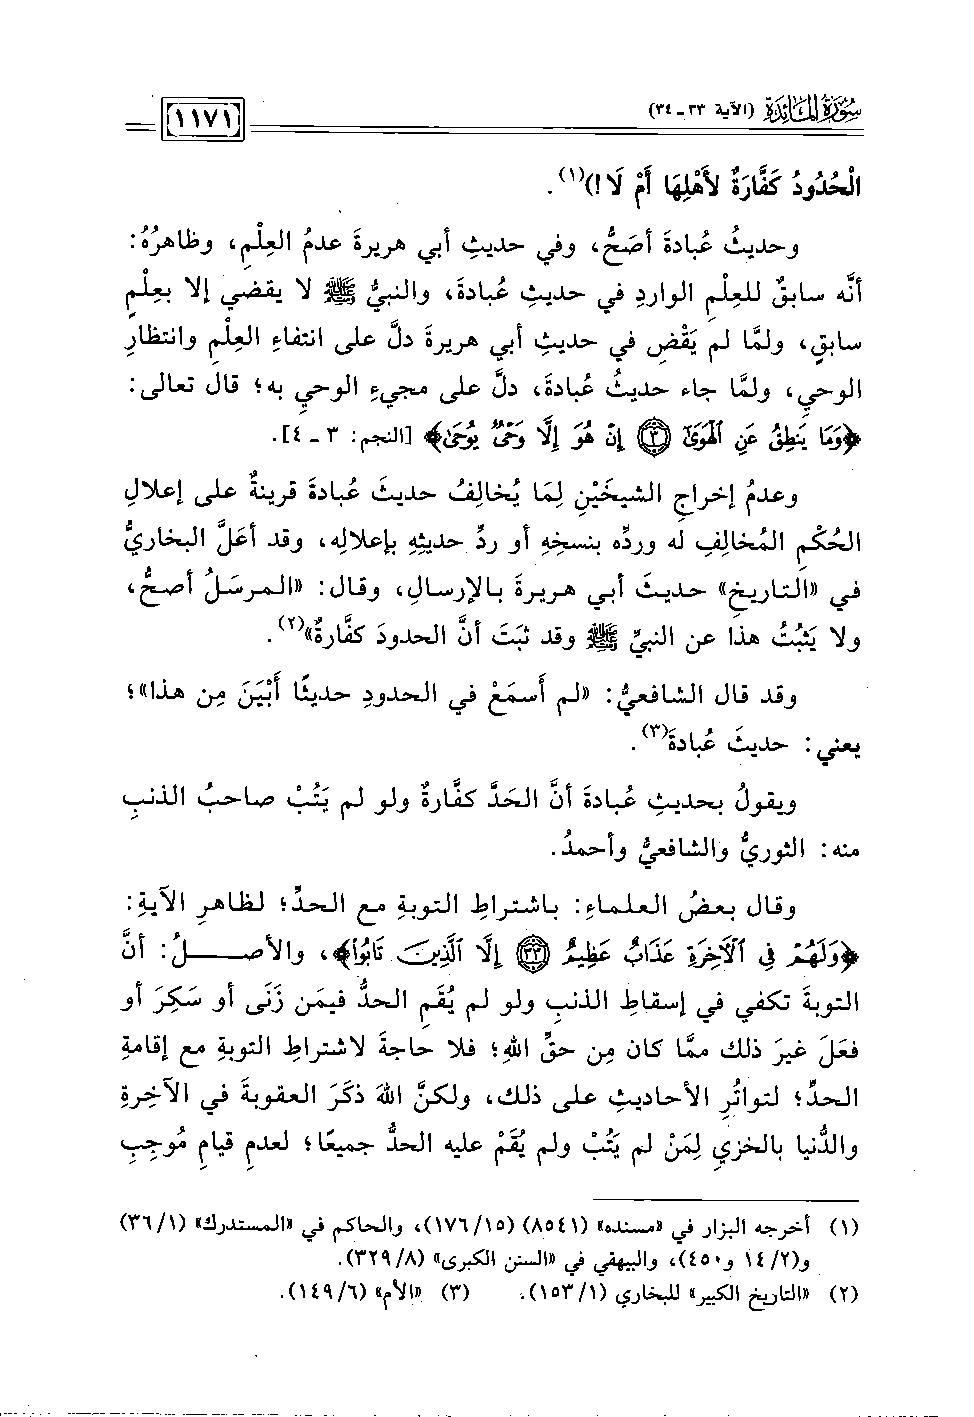 سُورَةُ المَائِدَةِ (الآية ٣٣ ـ ٣٤)
١١٧١
الْحُدُودُ كَفَّارَةٌ لأَهْلِهَا أَمْ لَا!)(١).
وحديثُ عُبادةَ أصَحُّ، وفي حديثِ أبي هريرةَ عدمُ العِلْمِ، وظاهرُهُ:
أنَّه سابقٌ للعِلْمِ الواردِ في حديثِ عُبادةَ، والنبيُّ ﷺ لا يقضي إلا بعِلْمٍ
سابقٍ، ولمَّا لم يَقْضِ في حديثِ أبي هريرةَ دلَّ على انتفاءِ العِلْمِ وانتظارِ
الوحيِ، ولمَّا جاء حديثُ عُبادةَ، دلَّ على مجيءِ الوحيِ به؛ قال تعالى:
﴿وَمَا يَنطِقُ عَنِ ٱلْهَوَىٰٓ ۝٣ إِنْ هُوَ إِلَّا وَحْىٌ يُوحَىٰ﴾ [النجم: ٣ ـ ٤].
وعدمُ إخراجِ الشيخَيْنِ لِمَا يُخالِفُ حديثَ عُبادةَ قرينةٌ على إعلالِ
الحُكْمِ المُخالِفِ له وردِّه بنسخِهِ أو ردِّ حديثِهِ بإعلالِه، وقد أعَلَّ البخاريُّ
في «التاريخِ» حديثَ أبي هريرةَ بالإرسالِ، وقال: «المرسَلُ أصحُّ،
ولا يَثبُتُ هذا عن النبيِّ ﷺ وقد ثبَتَ أنَّ الحدودَ كفَّارةٌ»(٢).
وقد قال الشافعيُّ: «لم أَسمَعْ في الحدودِ حديثًا أَبْيَنَ مِن هذا»؛
يعني: حديثَ عُبادةَ(٣).
ويقولُ بحديثِ عُبادةَ أنَّ الحَدَّ كفَّارةٌ ولو لم يَتُبْ صاحبُ الذنبِ
منه: الثوريُّ والشافعيُّ وأحمدُ.
وقال بعضُ العلماءِ: باشتراطِ التوبةِ مع الحدِّ؛ لظاهرِ الآيةِ:
﴿وَلَهُمْ فِى ٱلْأٓخِرَةِ عَذَابٌ عَظِيمٌ ۝٣٣ إِلَّا ٱلَّذِينَ تَابُواْ﴾، والأصـــلُ: أنَّ
التوبةَ تكفي في إسقاطِ الذنبِ ولو لم يُقَمِ الحدُّ فيمَن زَنَى أو سَكِرَ أو
فعَلَ غيرَ ذلك ممَّا كان مِن حقِّ اللهِ؛ فلا حاجةَ لاشتراطِ التوبةِ مع إقامةِ
الحدِّ؛ لتواتُرِ الأحاديثِ على ذلك، ولكنَّ اللهَ ذكَرَ العقوبةَ في الآخِرةِ
والدُّنيا بالخزيِ لِمَنْ لم يَتُبْ ولم يُقَمْ عليه الحدُّ جميعًا؛ لعدمِ قيامِ مُوجِبِ
(١) أخرجه البزار في «مسنده» (٨٥٤١) (١٧٦/١٥)، والحاكم في «المستدرك» (٣٦/١)
و(١٤/٢ و٤٥٠)، والبيهقي في «السنن الكبرى» (٣٢٩/٨).
(٢) «التاريخ الكبير» للبخاري (١٥٣/١). (٣) «الأم» (١٤٩/٦).